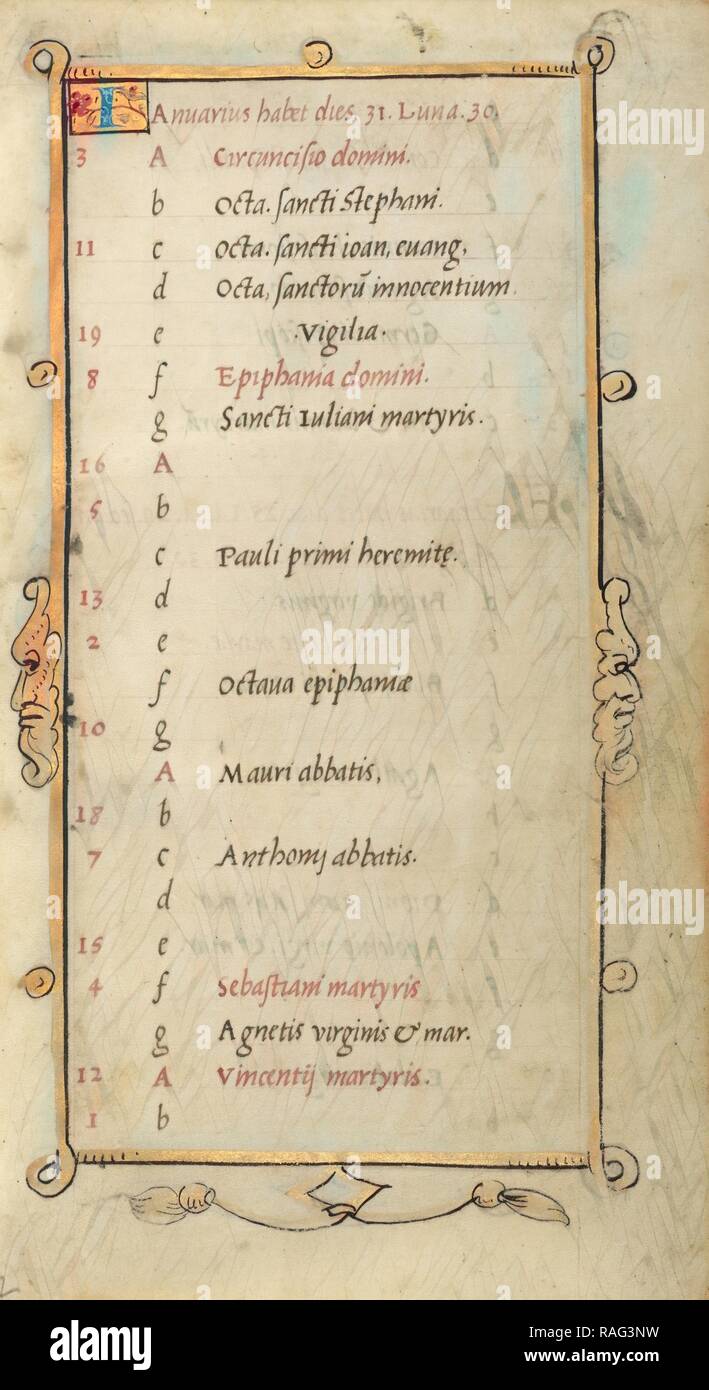 IAnuarius habet dies, 31. Luna. 30.
3 A Circuncisio domini.
b Octa. sancti Stephani.
11 c Octa. sancti ioan, euang,
d Octa, sanctorū innocentium.
19 e .Vigilia.
8 f Epiphania domini.
g Sancti Iuliani martyris.
16 A
5 b
c Pauli primi heremitę.
13 d
2 e
f Octaua epiphaniæ
10 g
A Mauri abbatis,
18 b
7 c Anthonij abbatis.
d
15 e
4 f Sebastiani martyris
g Agnetis virginis & mar.
12 A Vincentij martyris.
1 b
alamy
Image ID: RAG3NW
www.alamy.com